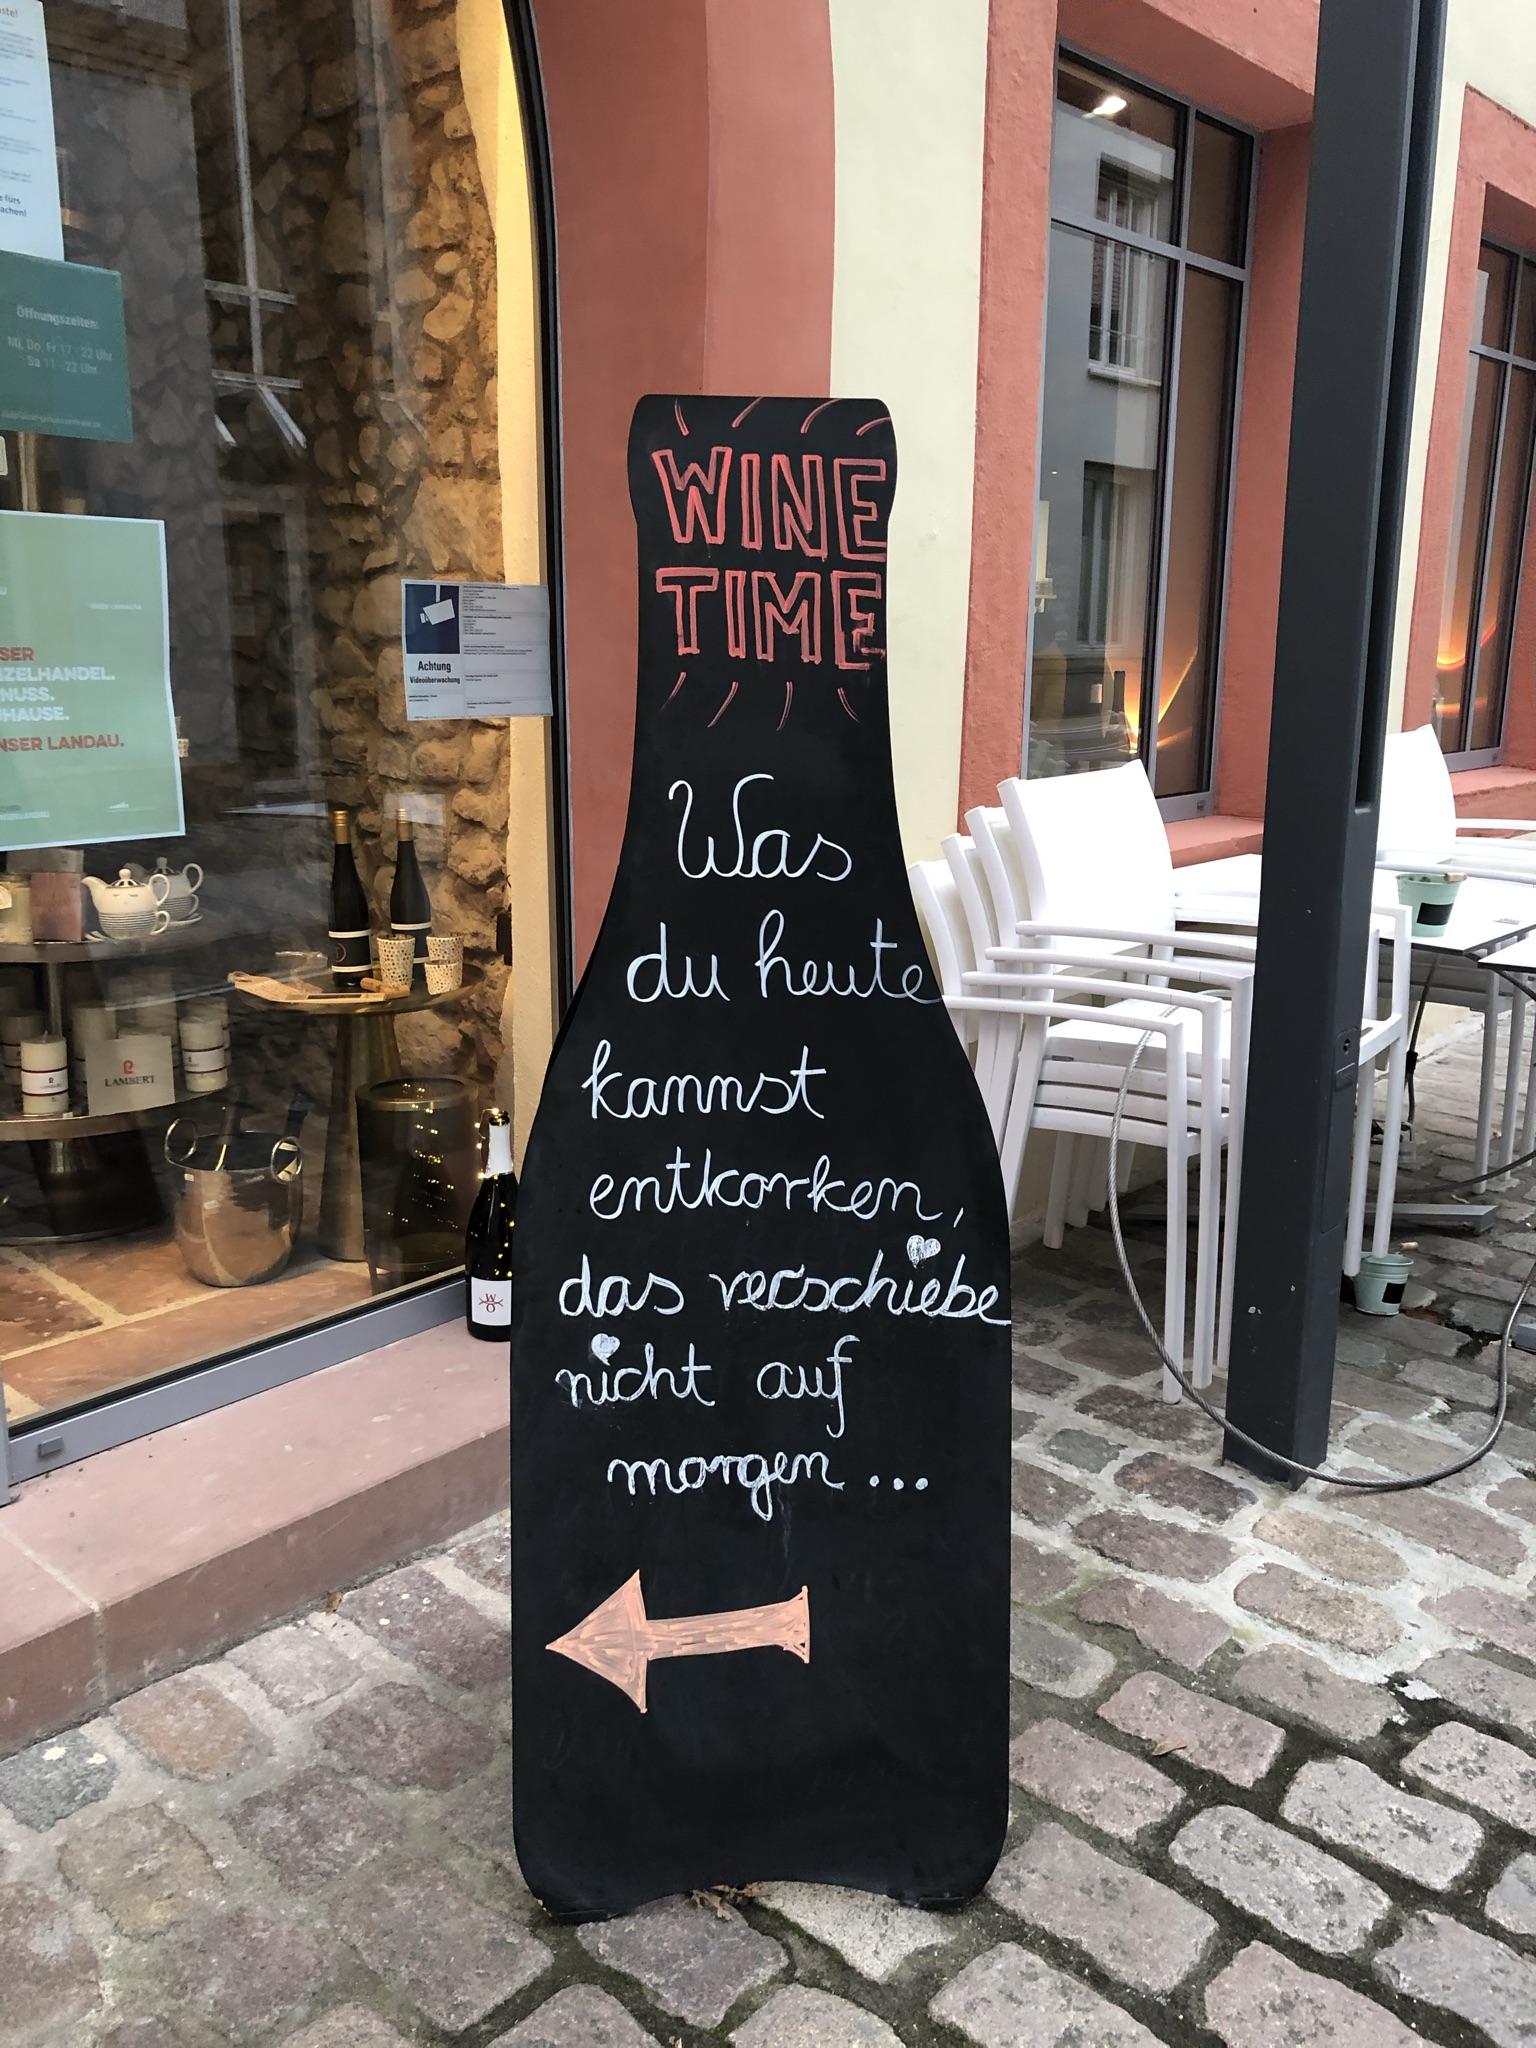 e fürs
achen!
Öffnungszeiten:
Mi, Do, Fr 17 - 22 Uhr
Sa 11 - 22 Uhr
SER
ZELHANDEL.
NUSS.
UHAUSE.
NSER LANDAU.
Achtung
Videoüberwachung
LAMBERT
W
O
WINE
TIME
Was
du heute
kannst
entkorken,
das verschiebe
nicht auf
morgen ...